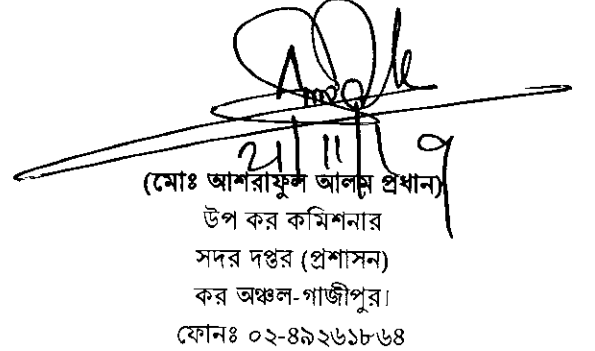 (মোঃ আশরাফুল আলম প্রধান)
উপ কর কমিশনার
সদর দপ্তর (প্রশাসন)
কর অঞ্চল-গাজীপুর।
ফোনঃ ০২-৪৯২৬১৮৬৪